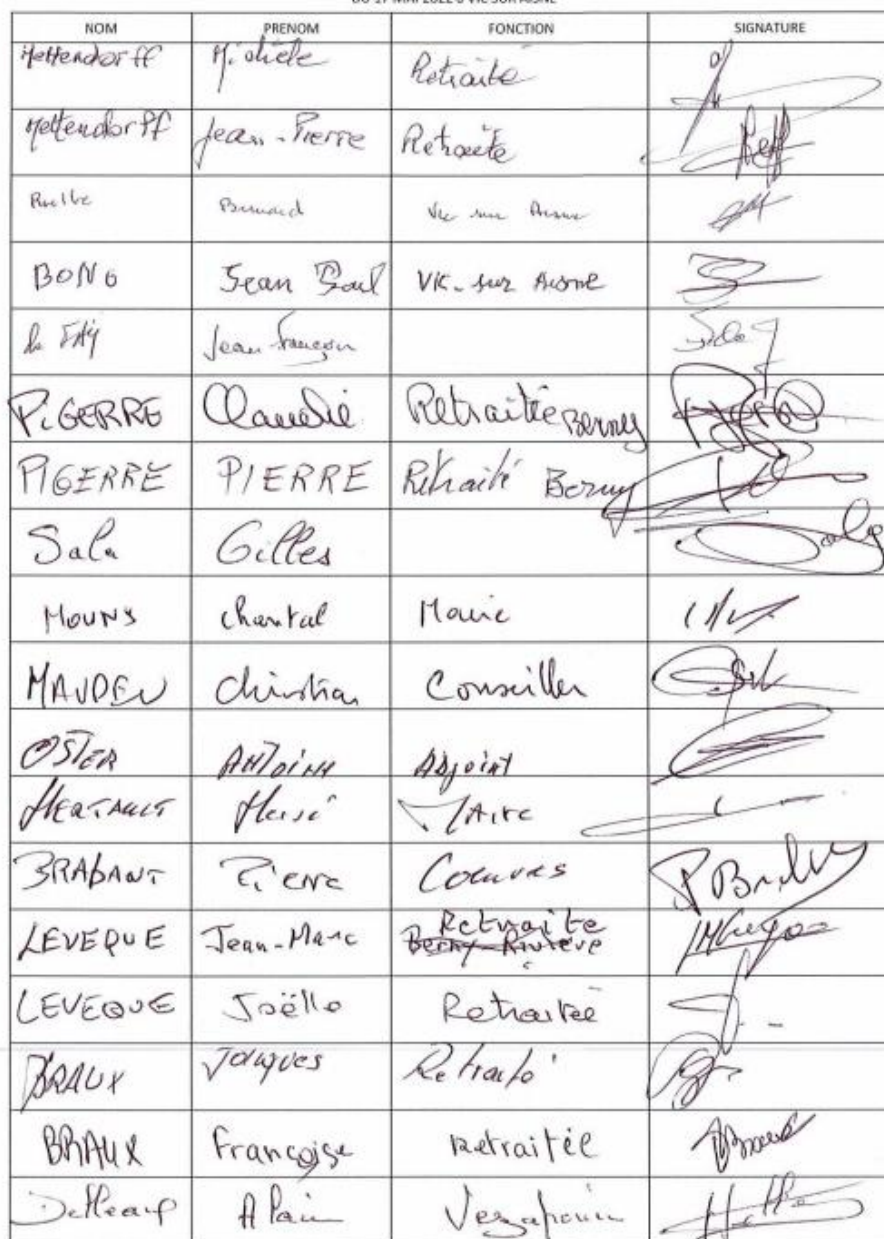 DU 17 MAI 2022 à VIC SUR AISNE
NOM PRENOM FONCTION SIGNATURE
Mettendorff Michèle Retraité
Mettendorff Jean-Pierre Retraité
Bernard Vic sur Aisne
BONO Jean Paul VIC-sur Aisne
de FAY Jean François
PIGERRE Claudie Retraitée Berny
PIGERRE PIERRE Retraité Berny
Sala Gilles Sala
MOUNY Chantal Maire
MAUDEN Christian Conseiller
OSTER ANTOINE ADJOINT
HERTAULT Hervé MAire
BRABANT Pierre Coeuvres
LEVEQUE Jean-Marc Retraite
Berny-Rivière
LEVEQUE Joëlle Retraitée
BRAUX Jacques Retraité
BRAUX Françoise Retraitée
Alain